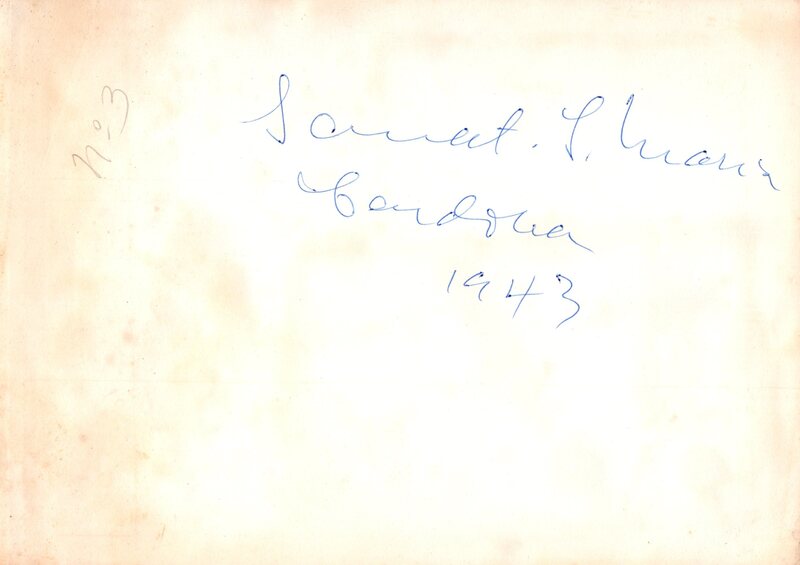 Nº 3
Sanat. S. Maria
Cordoba
1943